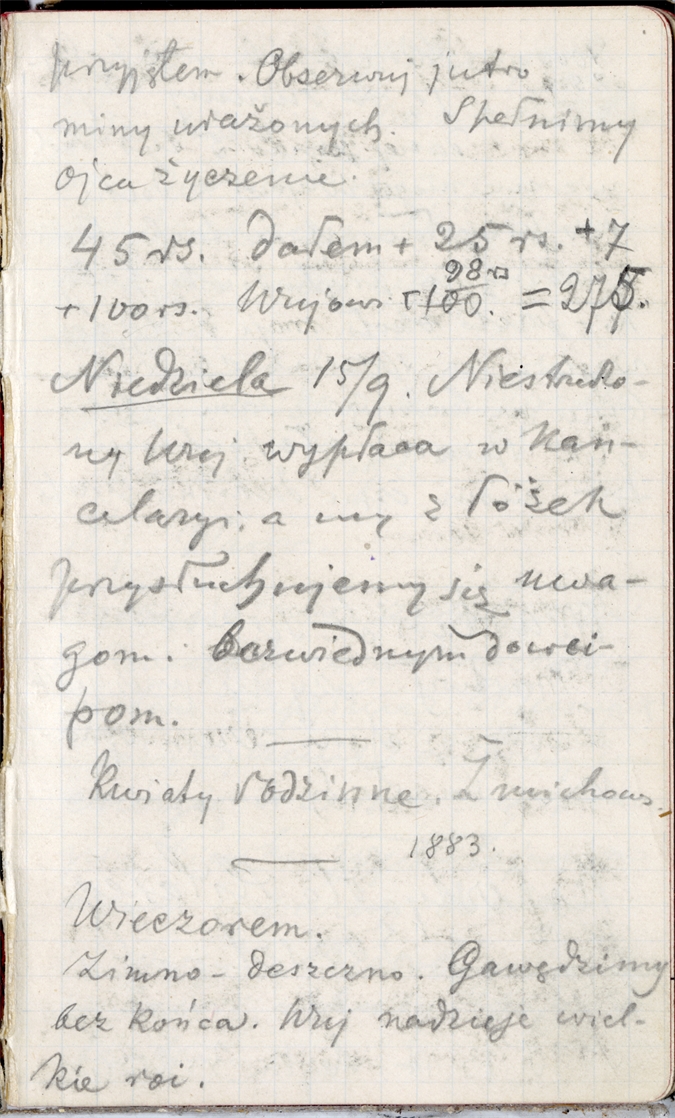 przyjąłem. Obserwuj jutro
miny urażonych. Spełnimy
ojca życzenie.
45 rs. dałem + 25 rs. + 7
+ 100 rs. Wujows + 100. 98 rs = 275.
Niedziela 15/9. Niestrudzo-
ny Wuj wypłaca w kan-
celaryi, a my z łóżek
przysłuchujemy się uwa-
gom. bezwiednym dowci-
pom.
Kwiaty rodzinne. Żmichows.
1883.
Wieczorem.
Zimno - deszczno. Gawędzimy
bez końca. Wuj nadzieje wiel-
kie roi.